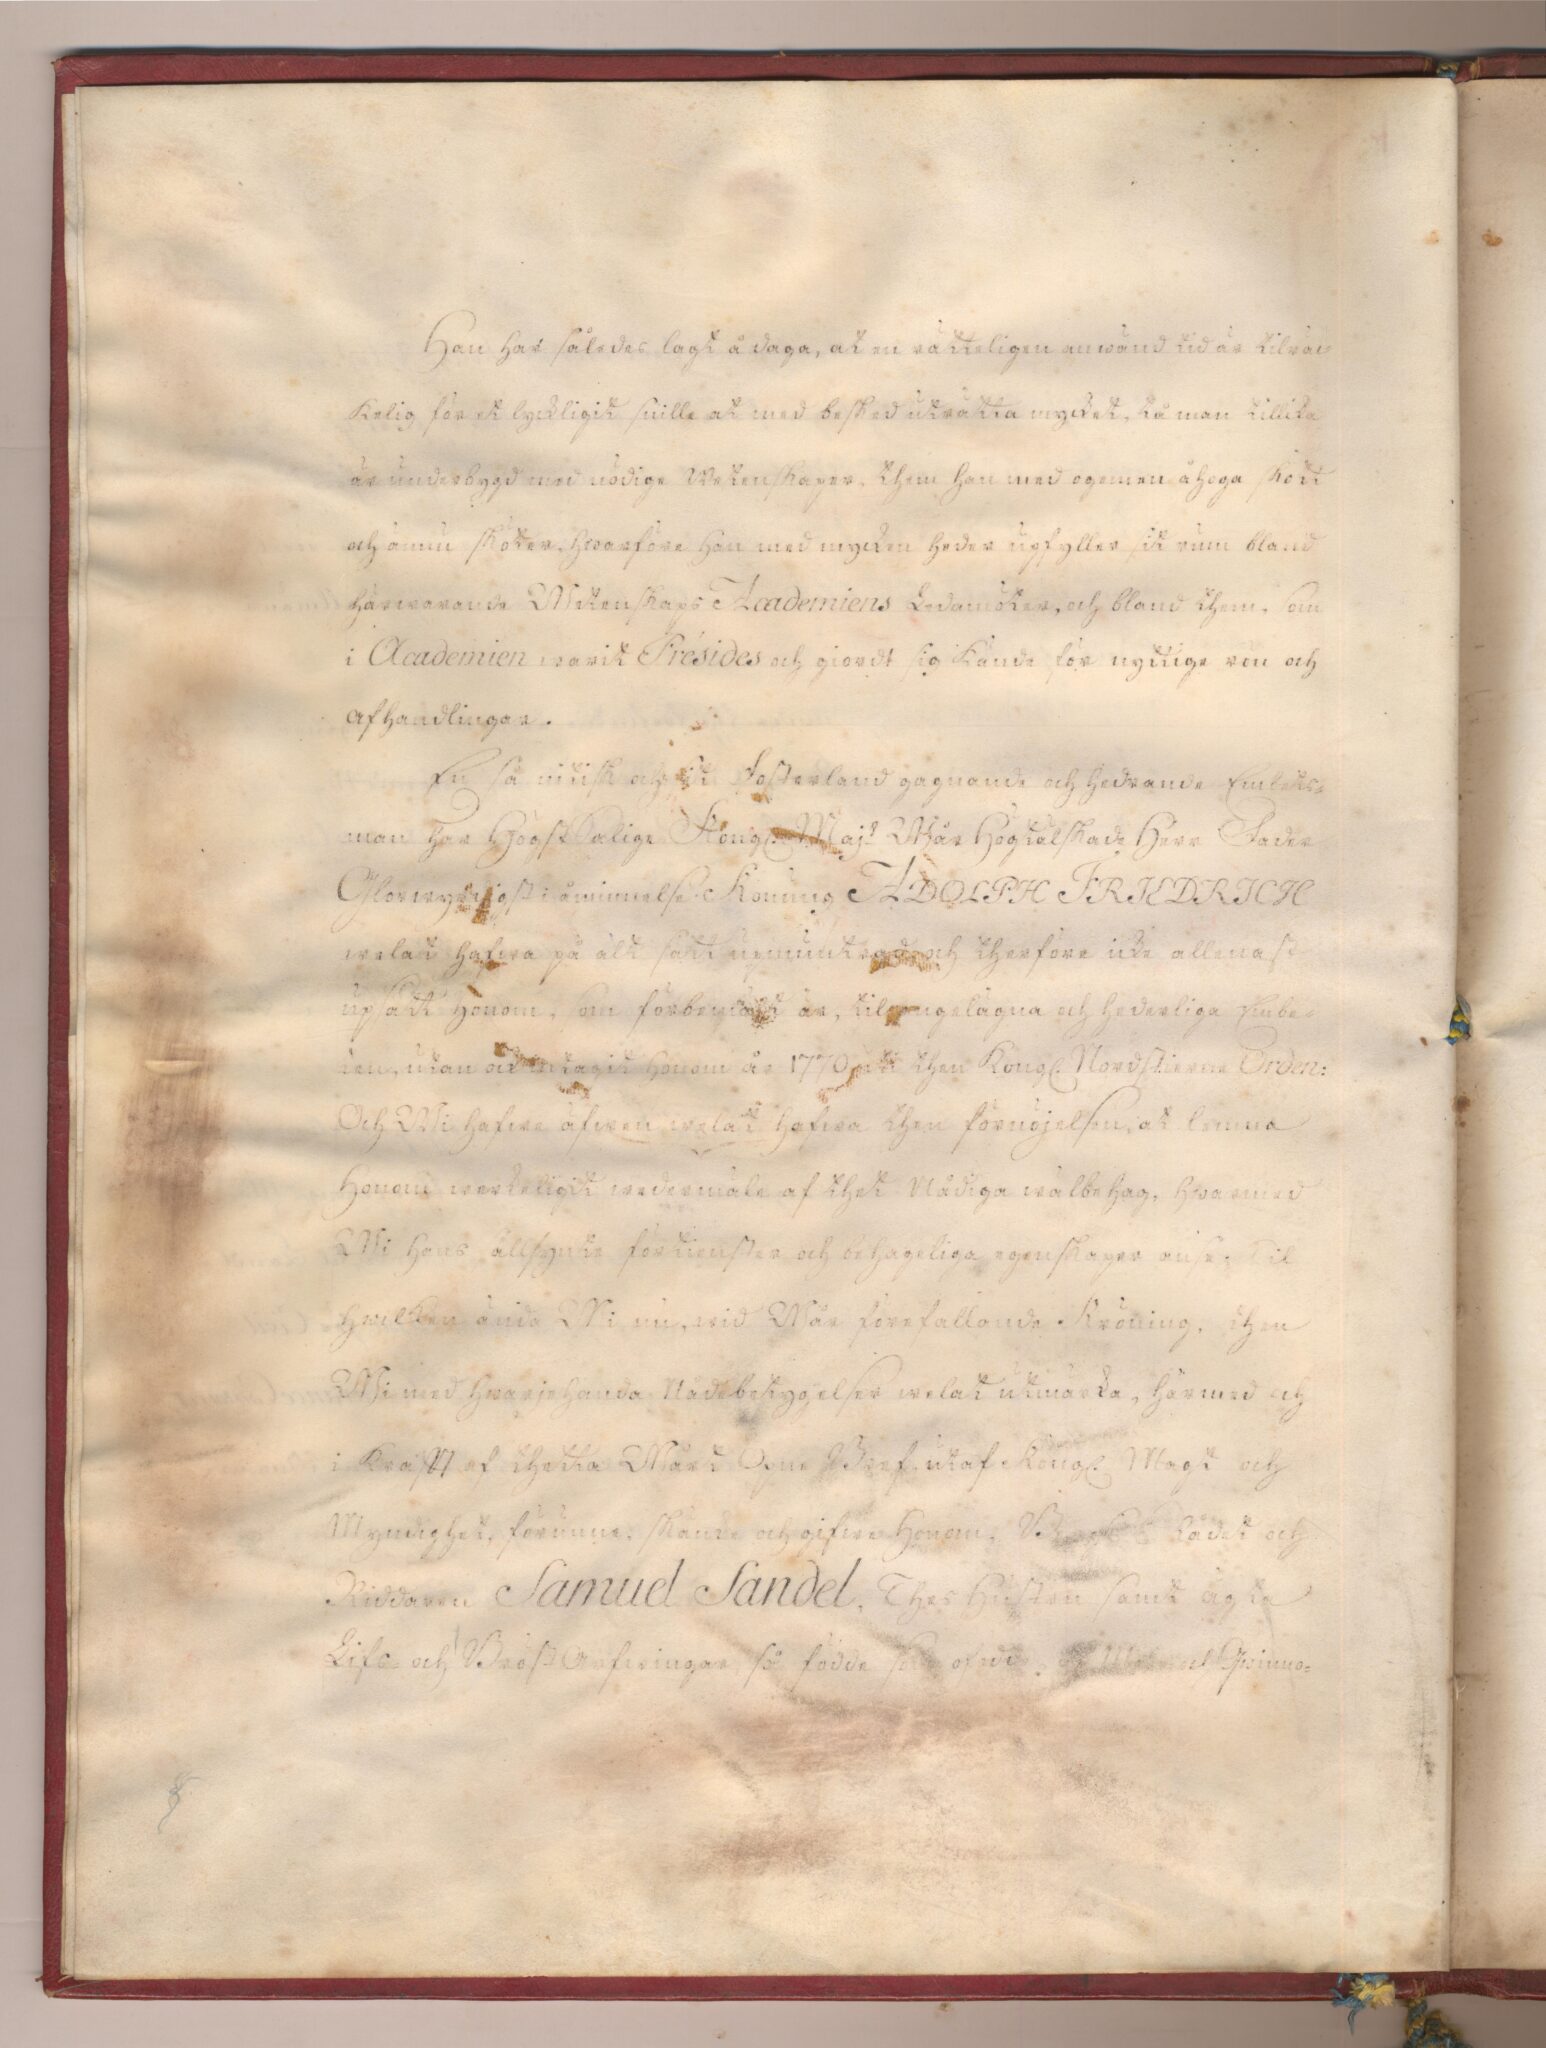 Han har således lagt å daga, at en rätteligen anwänd tid är tilräc-
kelig för et lyckligit snille at med besked uträtta mycket, tå man tillika
är underbygd med nödige Wetenskaper, them han med ogemen åhoga skött
och ännu sköter, hwarföre han med mycken heder upfyller sit rum bland
härwarande Wetenskaps Academiens Ledamöter, och bland them, som
i Academien warit Præsides och giordt sig kände för nyttige rön och
afhandlingar.
En så nitisk och sit Fosterland gagnande och hedrande Embets-
man har Högst Salige Kongl. Maj:t Wår Högtälskade Herr Fader
Glorwyrdigst i åminnelse Konung ADOLPH FRIEDRICH
welat hafwa på alt sätt upmuntrad och therföre icke allenast
upsatt honom, som förbemält är, til angelägna och hederliga Embe-
ten, utan ock intagit honom år 1770 uti then Kongl. Nordstierne Orden:
Och Wi hafwe äfwen welat hafwa then förnöjelsen, at lemna
honom werkeligit wedermäle af thet Nådiga wälbehag, hwarmed
Wi hans allsynte förtienster och behageliga egenskaper anse; Til
hwilken ända Wi nu, wid Wår förefallande Kröning, then
Wi med hwarjehanda Nådebetygelser welat utmärka, härmed och
i Kraft af thetta Wårt Öpne Bref, utaf Kongl. Magt och
Myndighet, förunne, skänke och gifwe honom, Bergs Rådet och
Riddaren Samuel Sandel, Thes Hustru samt ägta
Lifs- och Bröst Arfwingar, så födde som ofödde, Man- och Qwinno-